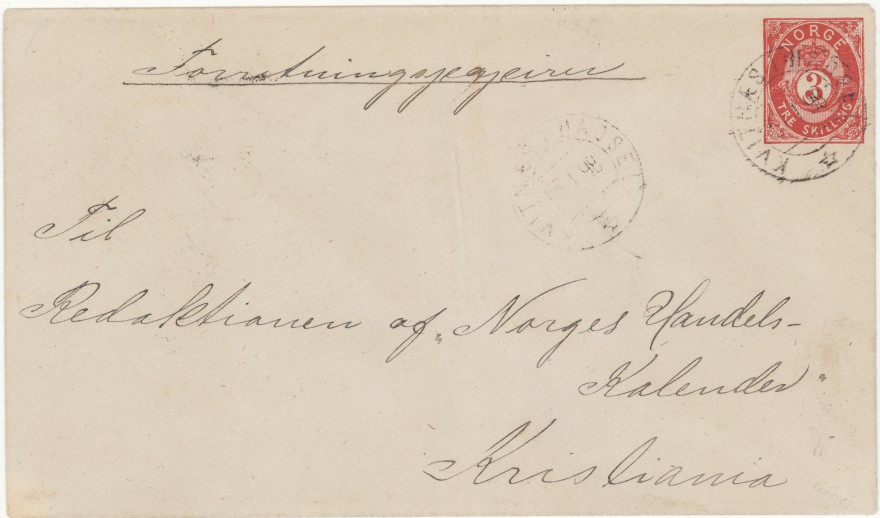 Forretningspapirer
NORGE
3
TRE SKILLING
KVITNÆS
Til
Redaktionen af „Norges Handels-
Kalender“
Kristiania